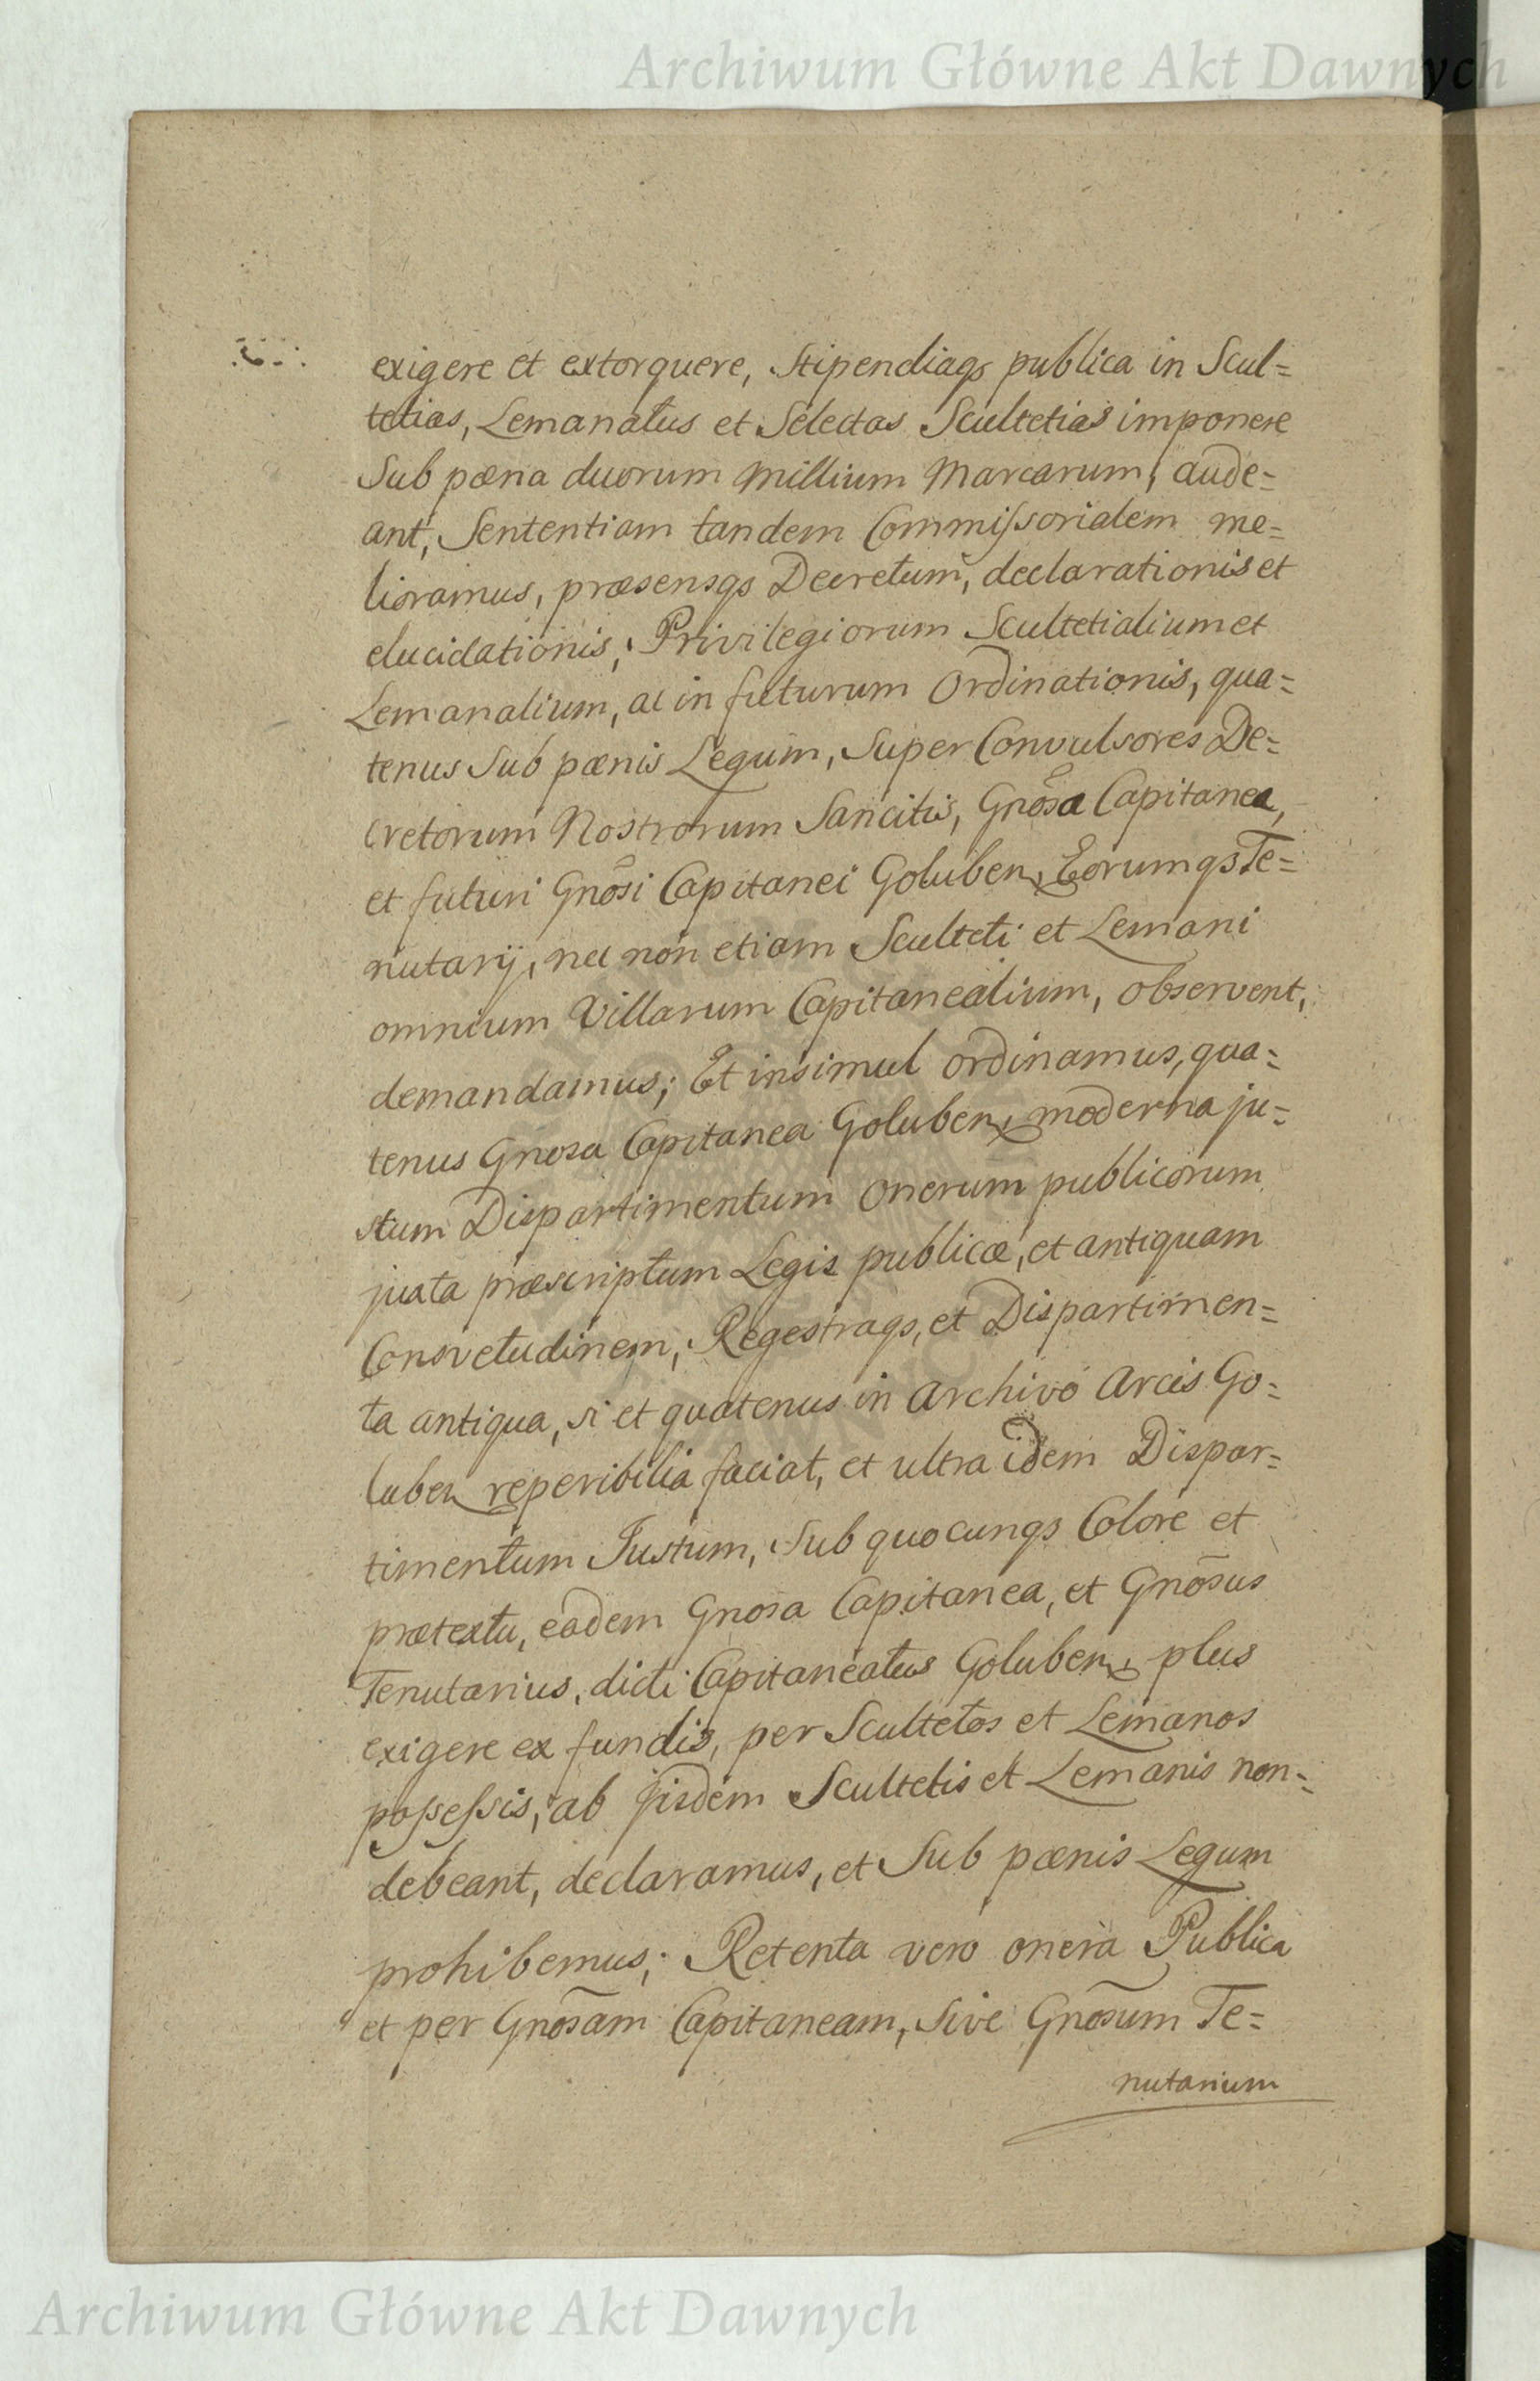 Archiwum Główne Akt Dawnych
exigere et extorquere, Stipendiaqs publica in Scul=
tetias, Lemanatus et Selectas Scultetias imponere
Sub pœna duorum Millium Marcarum, aude=
ant, Sententiam tandem Commissorialem me=
lioramus, præsensqs Decretum, declarationis et
elucidationis, Privilegiorum Scultetialium et
Lemanalium, ac in futurum Ordinationis, qua=
tenus Sub pœnis Legum, Super Convulsores De=
cretorum Nostrorum Sancitis, Gnõsa Capitanea,
et futuri Gnõsi Capitanei Goluben, Eorumqs Te=
nutarij, nec non etiam Sculteti et Lemani
omnium Villarum Capitanealium, observent,
demandamus; Et insimul ordinamus, qua=
tenus Gnosa Capitanea Goluben, moderna ju=
stum Dispartimentum onerum publicorum
juxta præscriptum Legis publicæ, et antiquam
Consvetudinem, Regestraqs, et Dispartimen=
ta antiqua, si et quatenus in Archivo Arcis Go=
luben reperibilia faciat, et ultra idem Dispar=
timentum Justum, Sub quocunqs Colore et
prætextu, eadem Gnosa Capitanea, et Gnõsus
Tenutarius, dicti Capitaneatus Goluben, plus
exigere ex fundis, per Scultetos et Lemanos
possessis, ab ijsdem Scultetis et Lemanis non=
debeant, declaramus, et Sub pœnis Legum
prohibemus; Retenta vero onera Publica
et per Gnõsam Capitaneam, Sive Gnõsum Te=
nutarium
Archiwum Główne Akt Dawnych